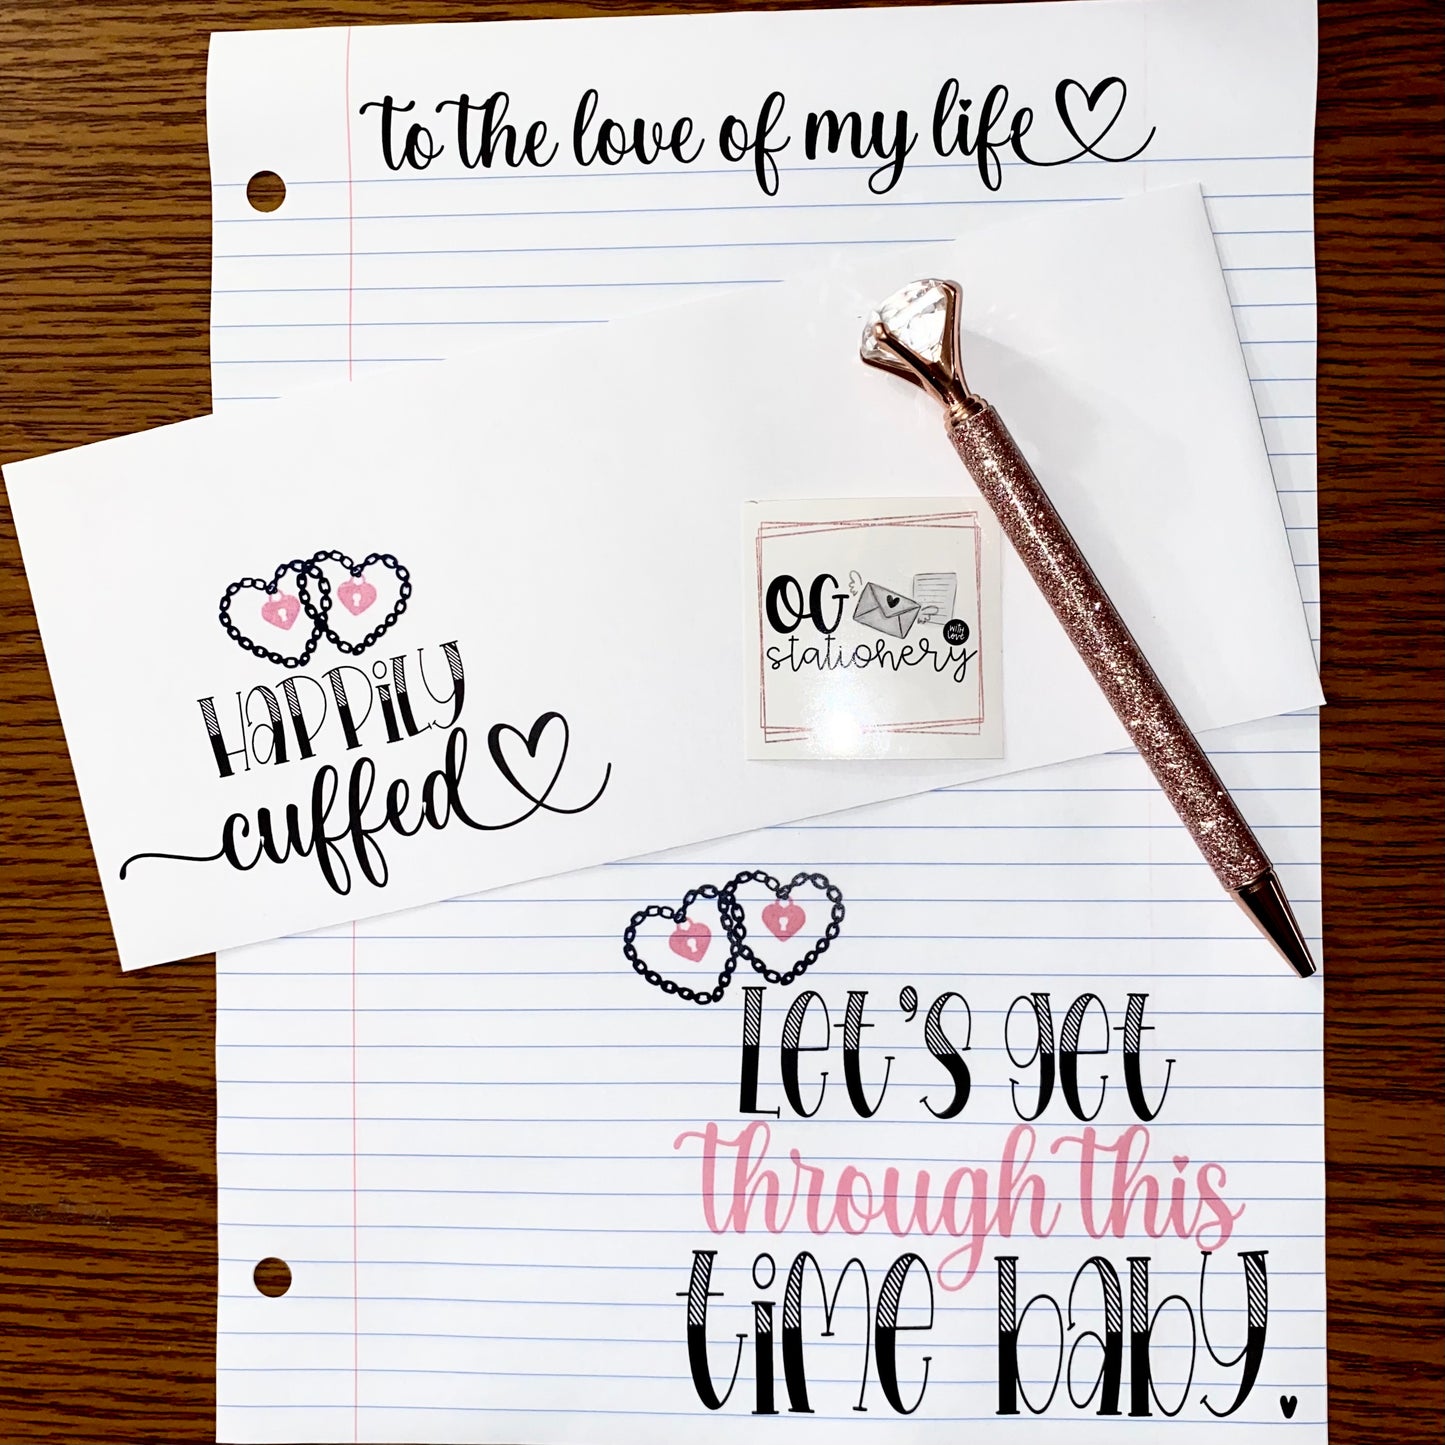 to the love of my life
Happily
cuffed
OG
with
love
stationery
Let's get
through this
time baby.